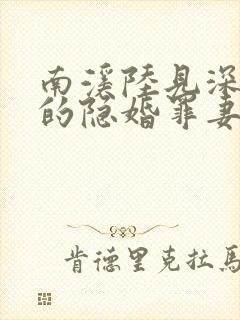 南溪陸見深
的隐婚罪妻
肯德里克拉馬